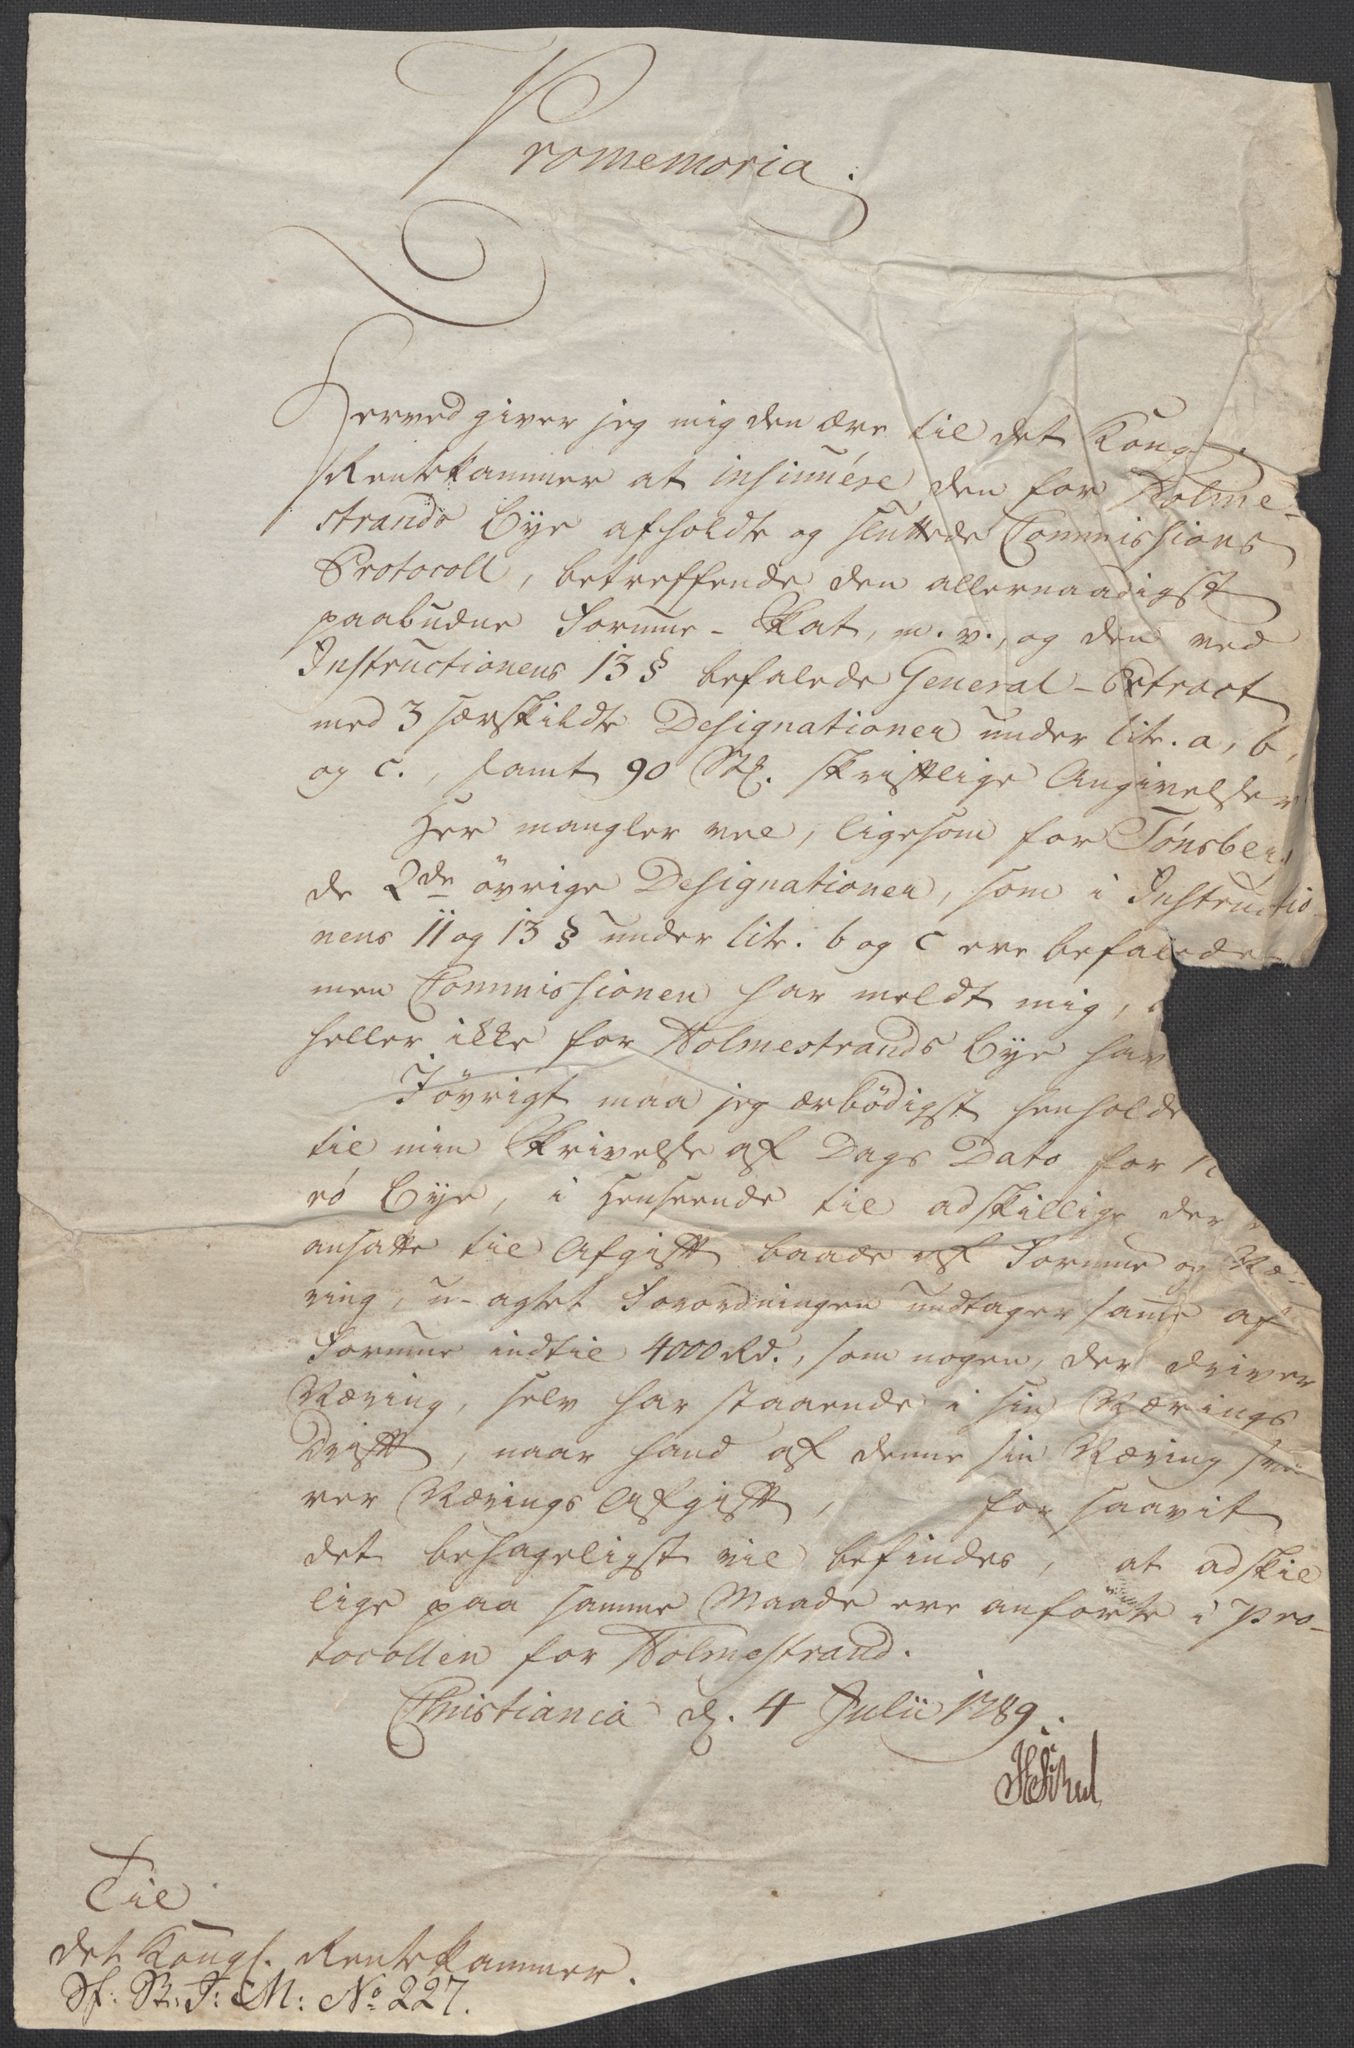 Promemoria.
Herved giver jeg mig den ære til det Kongl.
Rentekammer at insinuére den for Holme-
strands Bye afholdte og sluttede Commissions
Protocoll, betreffende den allernaadigst
paabudne Formue-Skat, m. v., og den ved
Instructionens 13 § befalede General-Extract
med 3 særskildte Designationer under litr. a, b,
og c., samt 90 Stk. skriftlige Angivelser
Her mangler vel, ligesom for Tønsberg
de 2de øvrige Designationer, som i Instructio-
nens 11 og 13 § under litr. b og c ere befalede
men Commissionen har meldt mig,
heller ikke for Holmestrands Bye hav
Iøvrigt maa jeg ærbødigst henholde
til min Skrivelse af Dags Dato for
rö Bye, i Henseende til adskillige der
ansatte til Afgift baade af Formue og Næ-
ring, u-agtet Forordningen undtager samme af
Formue indtil 4000 Rd., som nogen, der driver
Næring, selv har staaende i sin Nærings
Drift, naar hand af denne sin Næring sva-
rer Nærings Afgift, for saavit
det behageligst vil befindes, at adskil
lige paa samme Maade ere anførte i Pro-
tocollen for Holmestrand.
Christiania d. 4 Julii 1789.
Til
det Kongl. Rentekammer.
Sf: St: J: M: No 227.